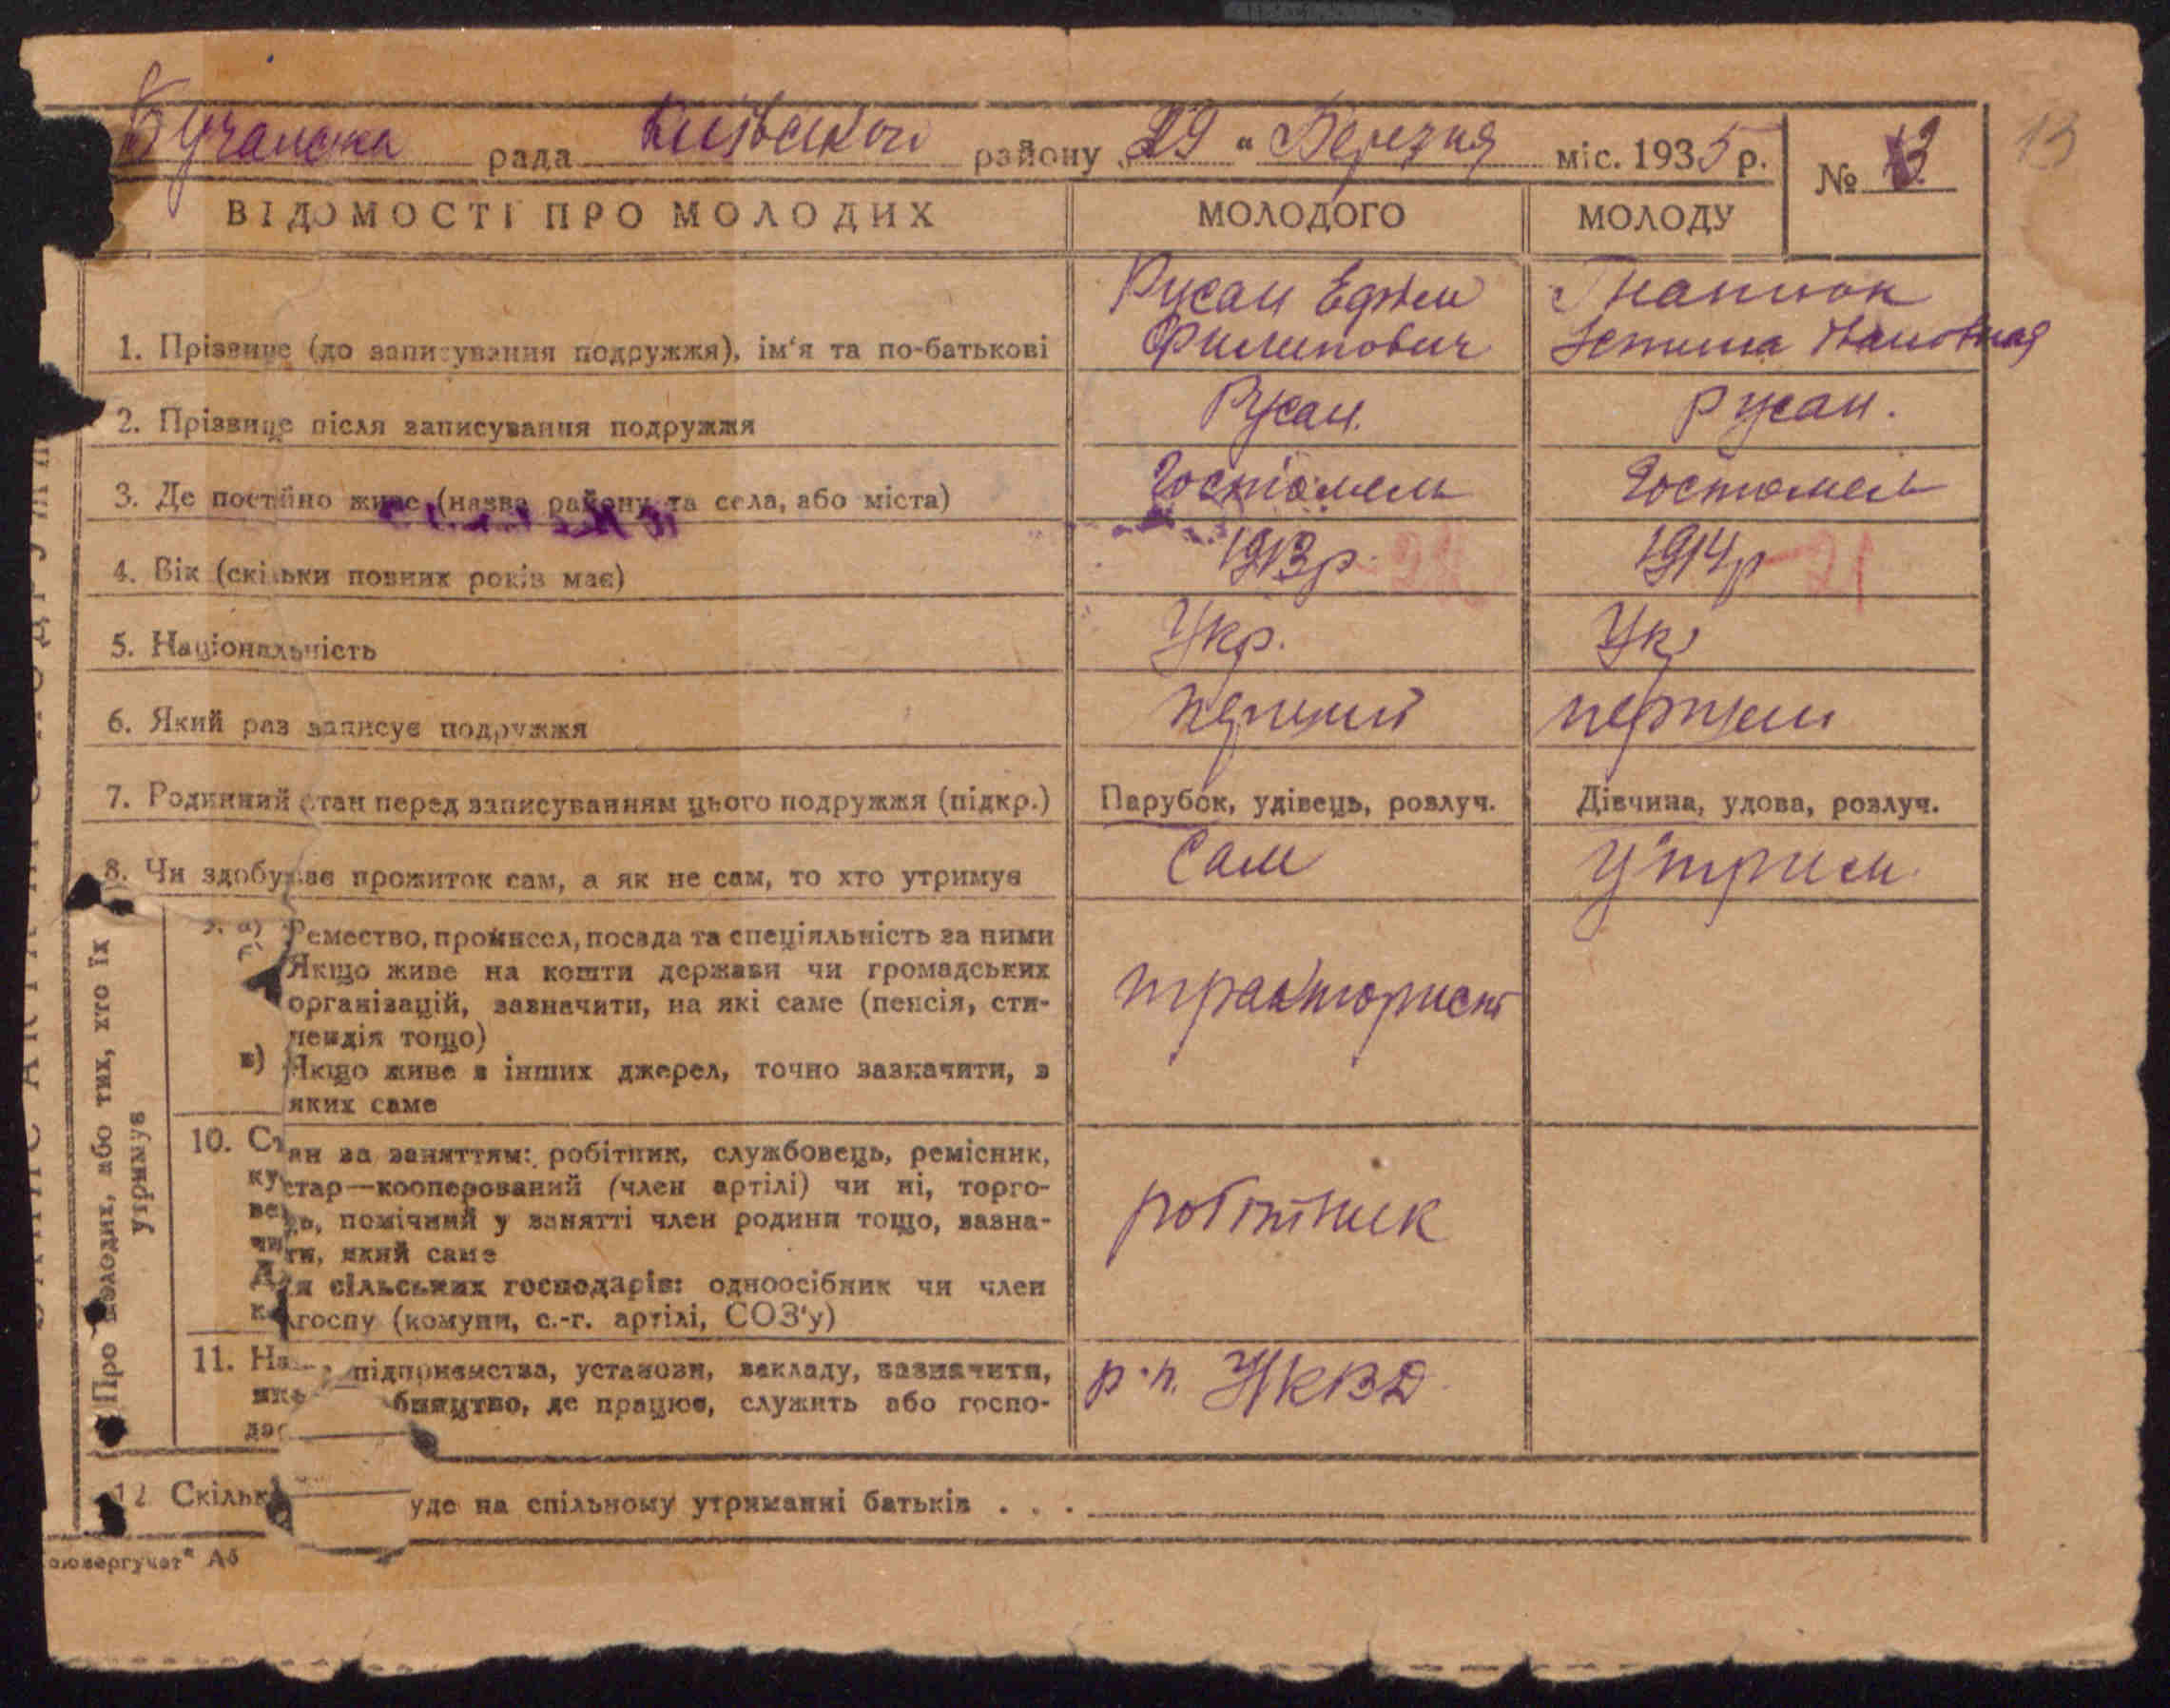 Бучанська рада Київського району „29“ Березня міс. 1935 р. № 13
13
ВІДОМОСТІ ПРО МОЛОДИХ
МОЛОДОГО
МОЛОДУ
1. Прізвище (до записування подружжя), ім'я та по-батькові
Русан Ефтем
Филипович
Гнатюк
Устина Ивановная
2. Прізвище після записування подружжя
Русан.
Русан.
3. Де постійно живе (назва району та села, або міста)
Гостомель
Гостомель
4. Вік (скільки повних років має)
1913р. 22
1914р 21
5. Національність
Укр.
Укр
6. Який раз записує подружжя
перший
першии
7. Родинний стан перед записуванням цього подружжя (підкр.)
Парубок, удівець, розлуч.
Дівчина, удова, розлуч.
8. Чи здобуває прожиток сам, а як не сам, то хто утримує
Сам
Утрим.
Про молодих, або тих, хто їх утримує
9. а) Ремество, промисел, посада та спеціяльність за ними
Якщо живе на кошти держави чи громадських
організацій, зазначити, на які саме (пенсія, сти-
пендія тощо)
в) Якщо живе з інших джерел, точно зазначити, з
яких саме
тракторист
10. Стан за заняттям: робітник, службовець, ремісник,
кустар—кооперований (член артілі) чи ні, торго-
вець, помічний у занятті член родини тощо, зазна-
чити, який саме
Для сільських господарів: одноосібник чи член
колгоспу (комуни, с.-г. артілі, СОЗ'у)
робітник
11. На підприємства, установи, закладу, зазначити,
бництво, де працює, служить або госпо-
р.п. НКВД
12 Скільк уде на спільному утриманні батьків . . .